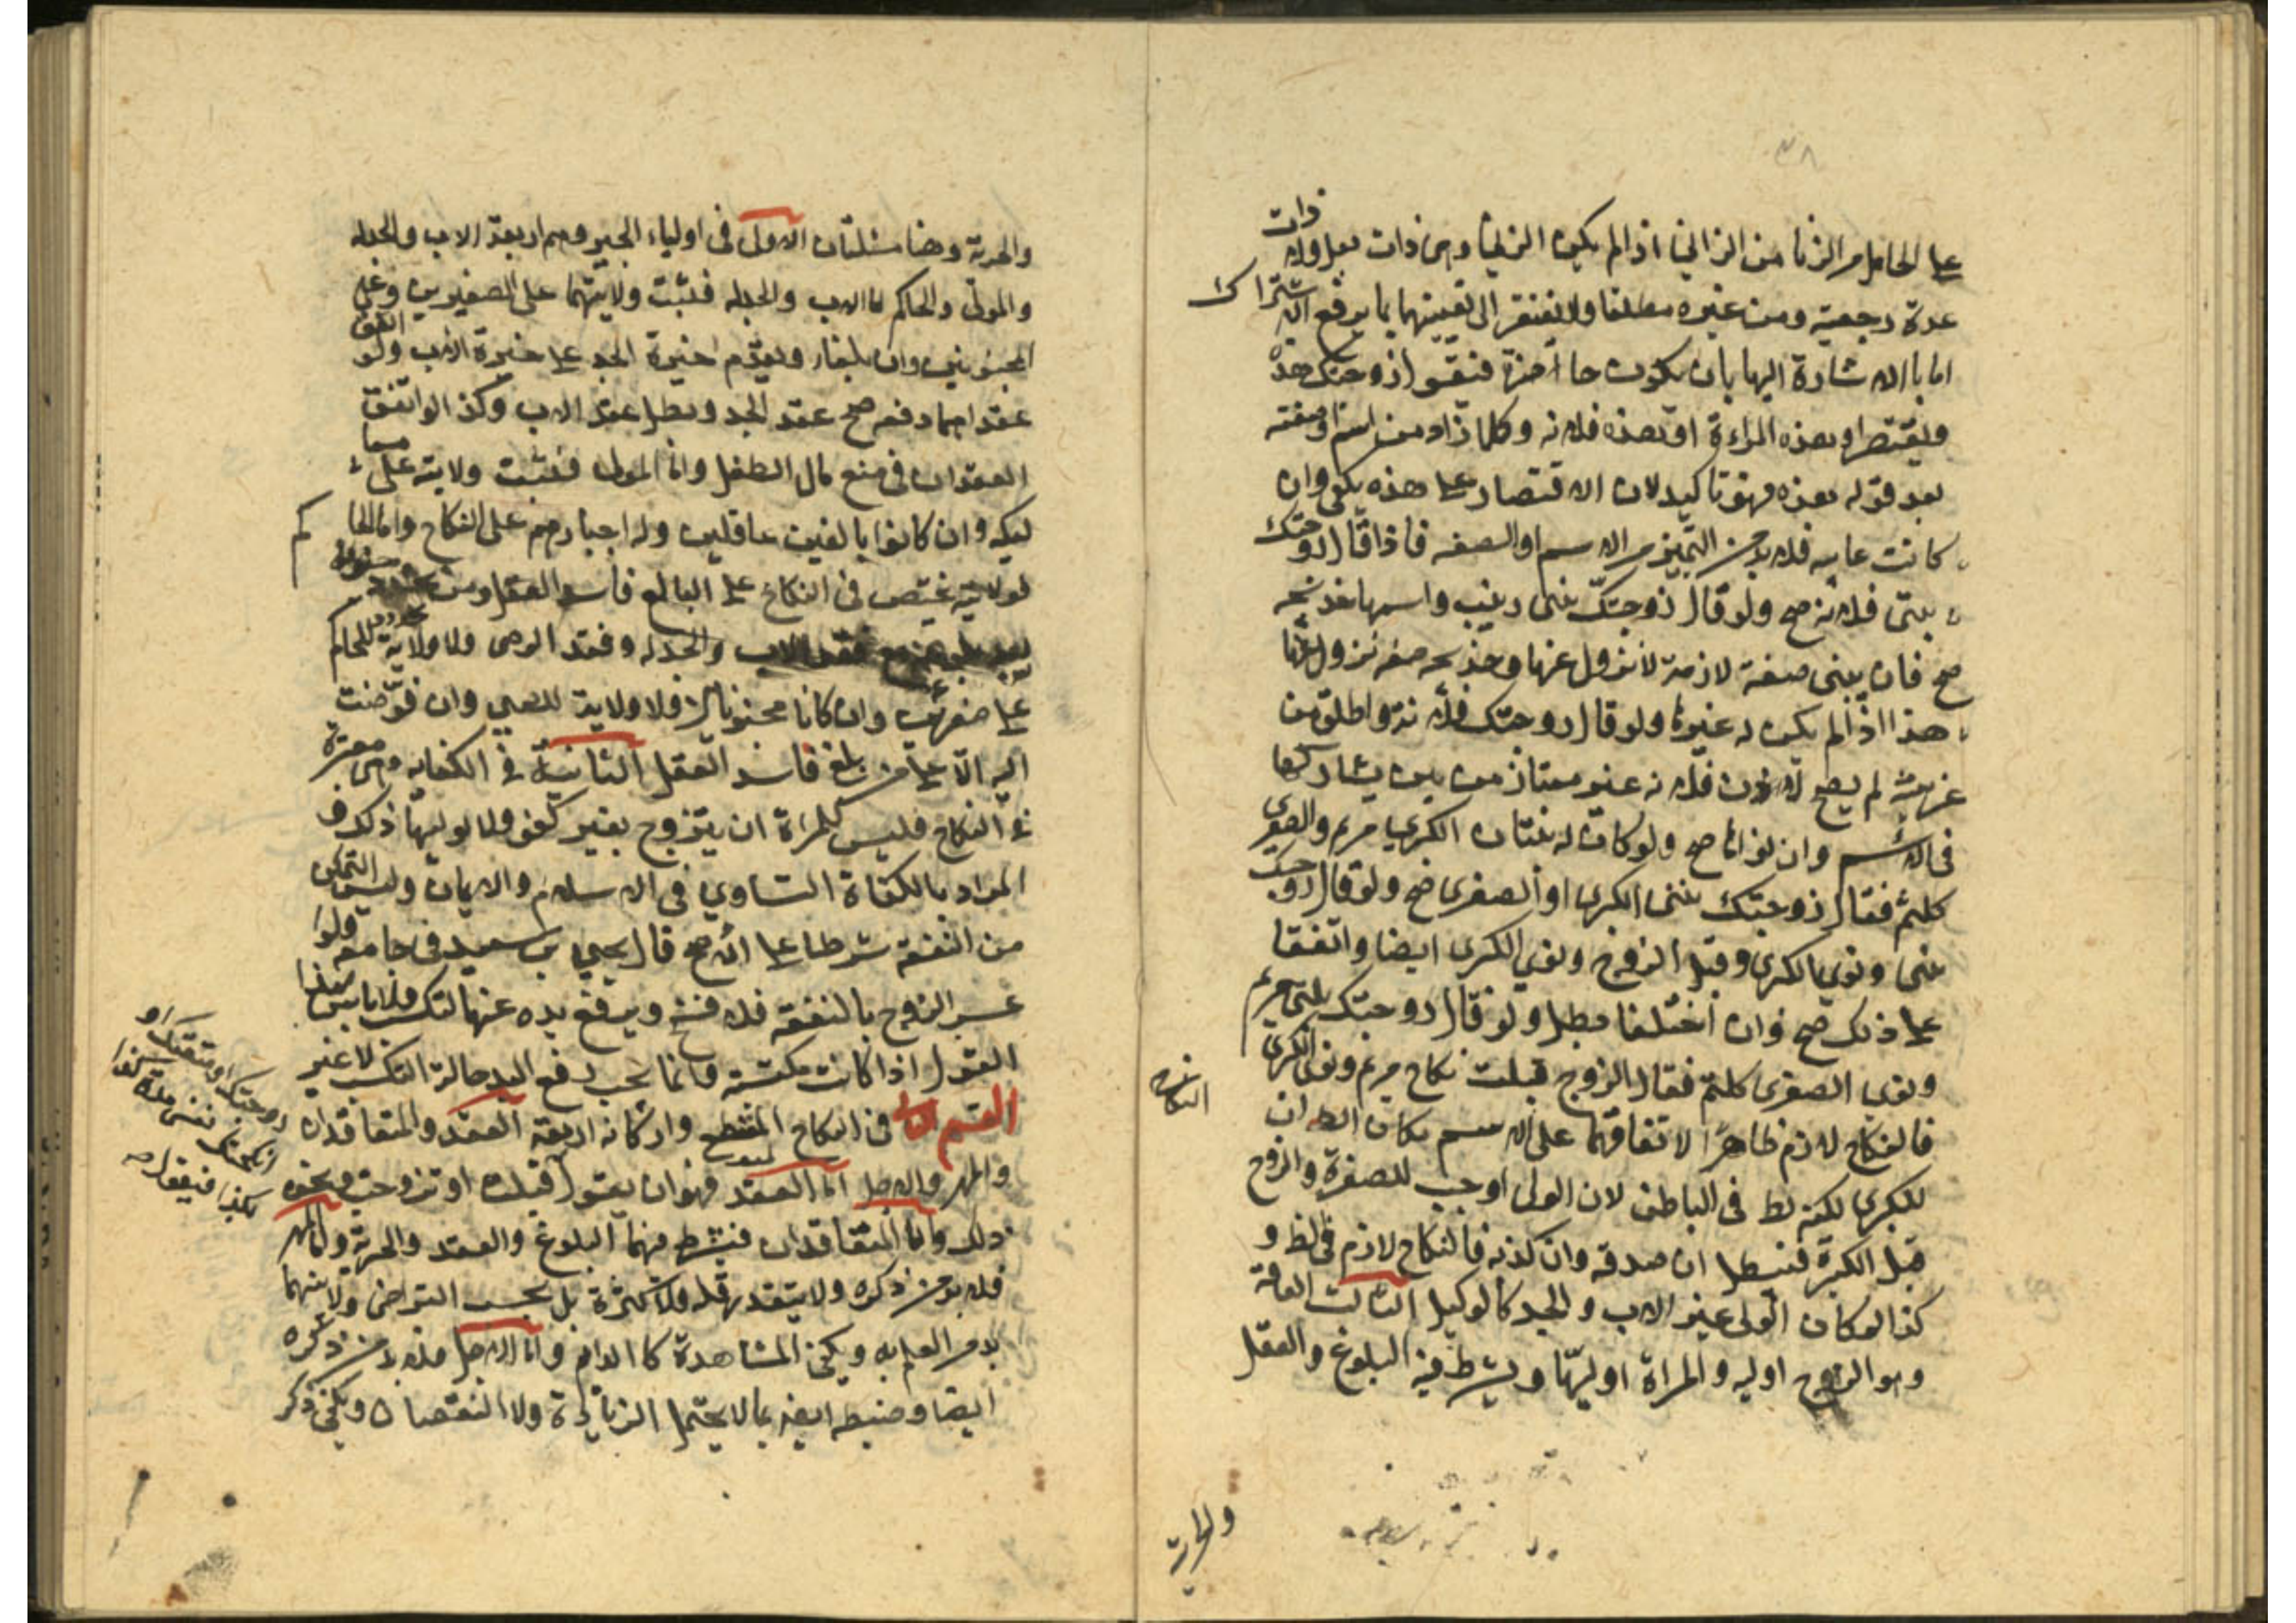 ٣٨
على الحامل من الزنا من الزاني اذا لم يكن الزنا وهى ذات بعل ولا ذات
عدة رجعية ومن غيره مطلقا ولا يفتقر الى تعيينهما بما يرفع الاشتراك
اما بالاشارة اليها بان يكون حاضرة فنقول زوجتك هذه
ويقتصر او بهذه المراءة او بهذه فلانه وكلما زاد من اسم او صفته
بعد قوله بهذه فهو تاكيد لان الاقتصار على هذه يكفى وان
كانت غايبه فلا بد من التميز من الاسم او الصفه فاذا قال زوجتك
بنتى فلانه صح ولو قال زوجتك بنتى زينب واسمها خديجه
صح فان بنتى صفة لازمة لا تزول عنها وخديجه صفه تزول عنها
هذا اذا لم يكن له غيرها ولو قال زوجتك فلانة واطلق من
غير لم يصح لان فلانه غير ممتاز من بين يشاركها
فى الاسم وان نواها صح ولو كان له بنتان الكبرى مريم والصغرى
كلثم فقال زوجتك بنتى الكبرى او الصغرى صح ولو قال زوجتك
بنتى ونوى الكبرى وقبل الزوج ونوى الكبرى ايضا واتفقا
على ذلك صح وان اختلفا بطل ولو قال زوجتك بنتى مريم
ونوى الصغرى كلثم فقال الزوج قبلت نكاح مريم ونوى الكبرى
فالنكاح لازم ظاهرا لاتفاقهما على الاسم مكان الظ ان النكاح
للكبرى لكنه بط فى الباطن لان الولى اوجب للصغرة والزوج
قبل الكبرة فيبطل ان صدقه وان كذبه فالنكاح لازم فى الظ و
كذا لو كان الولى غير الاب والجد كالوكيل الثالث العاقد
وهو الزوج او ليه والمراة او ليها ويشرط فيه البلوغ والعقل
والحرية
والحرية وهنا مسئلتان الاولى فى اولياء الجبر وهم اربعة الاب والجد له
والمولى والحاكم اما الاب والجد له فتثبت ولايتهما على الصغيرين وعلى
المجنونين وان بلغا ويقدم اخيرة الجد على خيرة الاب ولو اتفق
عقداهما دفعه صح عقد الجد وبطل عقد الاب وكذا لو اتفق
العقدان فى منع مال الطفل واما المولى فتثبت ولايته على مما
ليكه وان كانوا بالغين عاقلين وله اجبارهم على النكاح واما الحاكم
لولايته يختص فى النكاح على البالغ فاسد العقل ومن
والجد له وفقد الوصى ولا ولاية للحاكم
على صغيرين وان كانا مجنونا ولا ولاية للصبي وان فوضت
اليه الا على من بلغ فاسد العقل الثانية فى الكفايه وهى معتبرة
فى النكاح فليس للمراة ان يتزوج بغير كفو ولا لوليها ذلك و
المراد بالكفاة التساوي فى الاسلام والايمان وليس التمكن
من النفقه شرطا على الاصح قال يحيى بن سعيد فى جامعه ولو
عسر الزوج بالنفقه فلا فسخ ويرفع يده عنها لتكسب
العقول اذا كانت مكتسبه فانما يجب رفع اليد حالة التكسب لا غير
القسم الثانى فى النكاح المنقطع واركانه اربعة العقد والمتعاقدان
والمهر والاجل اما العقد فهو ان يقول قبلت او تزوجت ونحوه
زوجتك او متعتك او
انكحتك نفسى مدة كذا
بكذا فيقول
ذلك واما المتعاقدان فيشرط فيهما البلوغ والعقد والحرية واما المهر
فلا بد من ذكره ولا يتقدر قلة ولا كثرة بل بحسب التراضى ولا
بد من العلم به ويكفى المشاهدة كالدايم واما الاجل فلا بد من ذكره
ايضا وضبطه ايضه بما لا يحتمل الزيادة ولا النقصان ويكفى ذكر